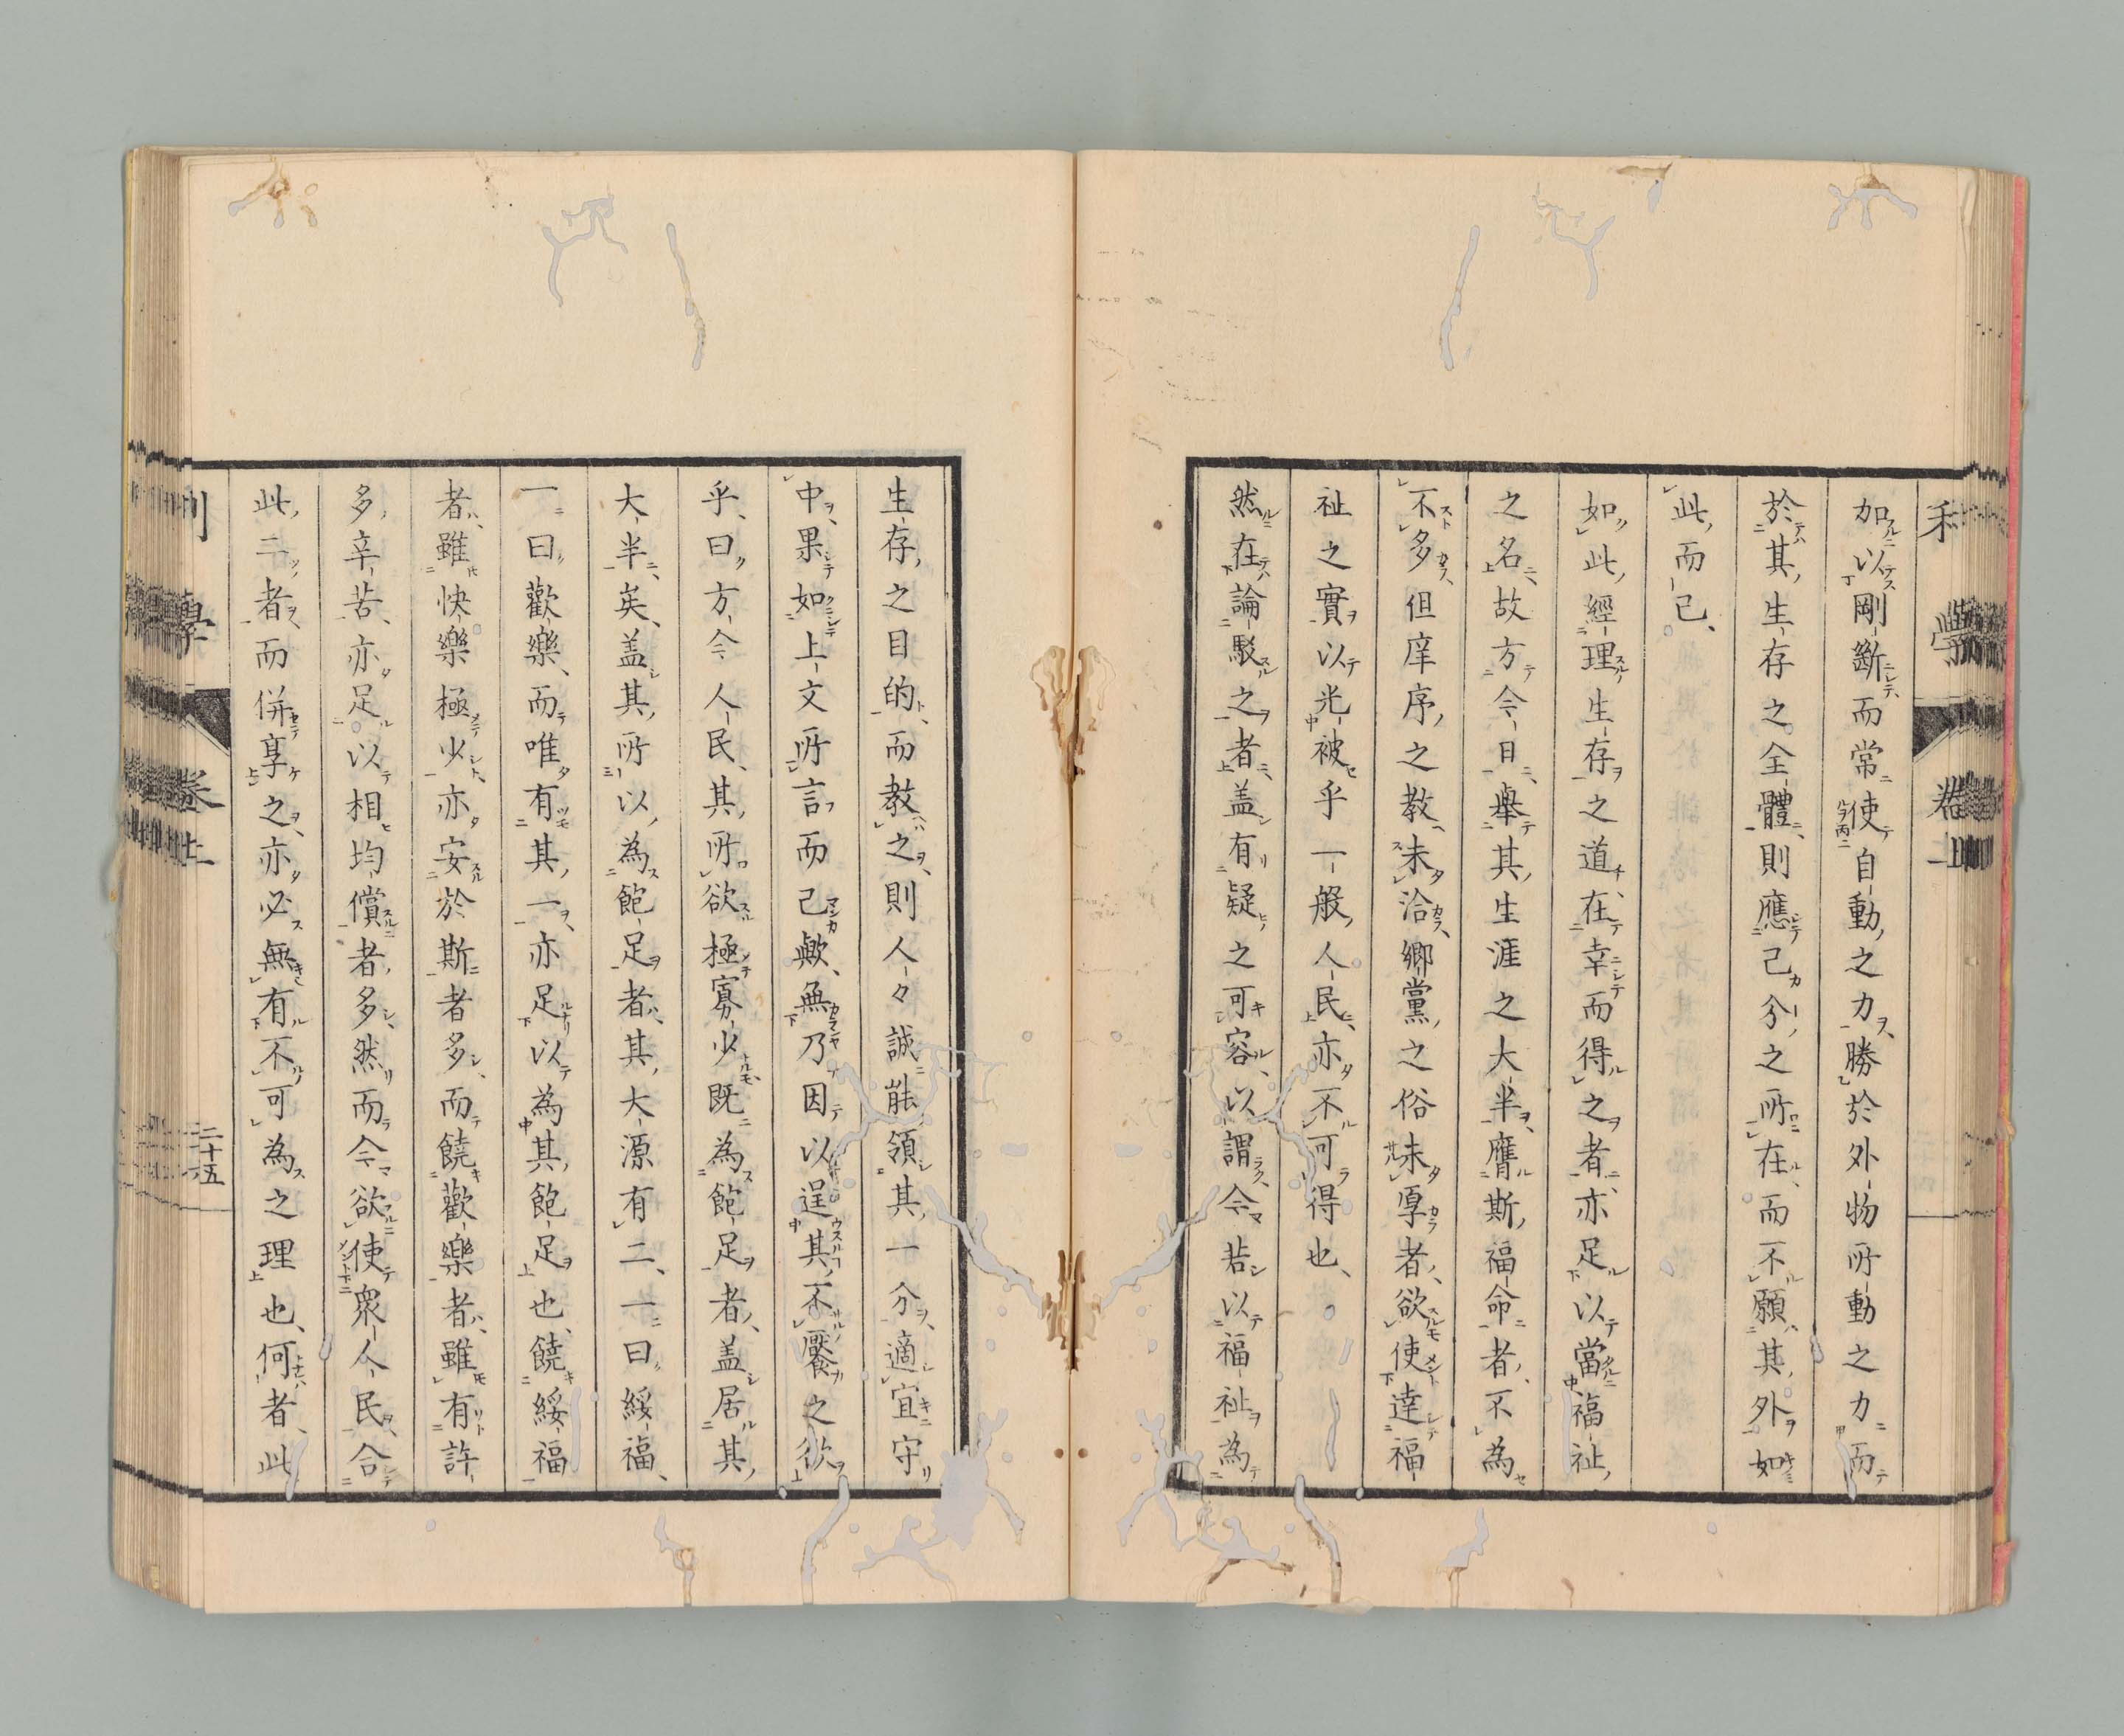 加以剛斷而常使自動之力勝於外物所動之力而
於其生存之全體則應己分之所在而不願其外如
此而已
如此經理生存之道在幸而得之者亦足以當福祉
之名故方今日舉其生涯之大半膺斯福命者不為
不多但庠序之教未洽鄉黨之俗未厚者欲使達福
祉之實以光被乎一般人民亦不可得也
然在論駁之者盖有疑之可容以謂今若以福祉為
生存之目的而教之則人々誠能領其一分適宜守
中果如上文所言而已歟無乃因以逞其不饜之欲
乎曰方今人民其所欲極寡少既為飽足者盖居其
大半矣盖其所以為飽足者其大源有二一曰綏福
一曰歡樂而唯有其一亦足以為其飽足也饒綏福
者雖快樂極少亦安於斯者多而饒歡樂者雖有許
多辛苦亦足以相均償者多然而今欲使衆人民合
此二者而併享之亦必無有不可為之理也何者此
利學 卷上
二十五